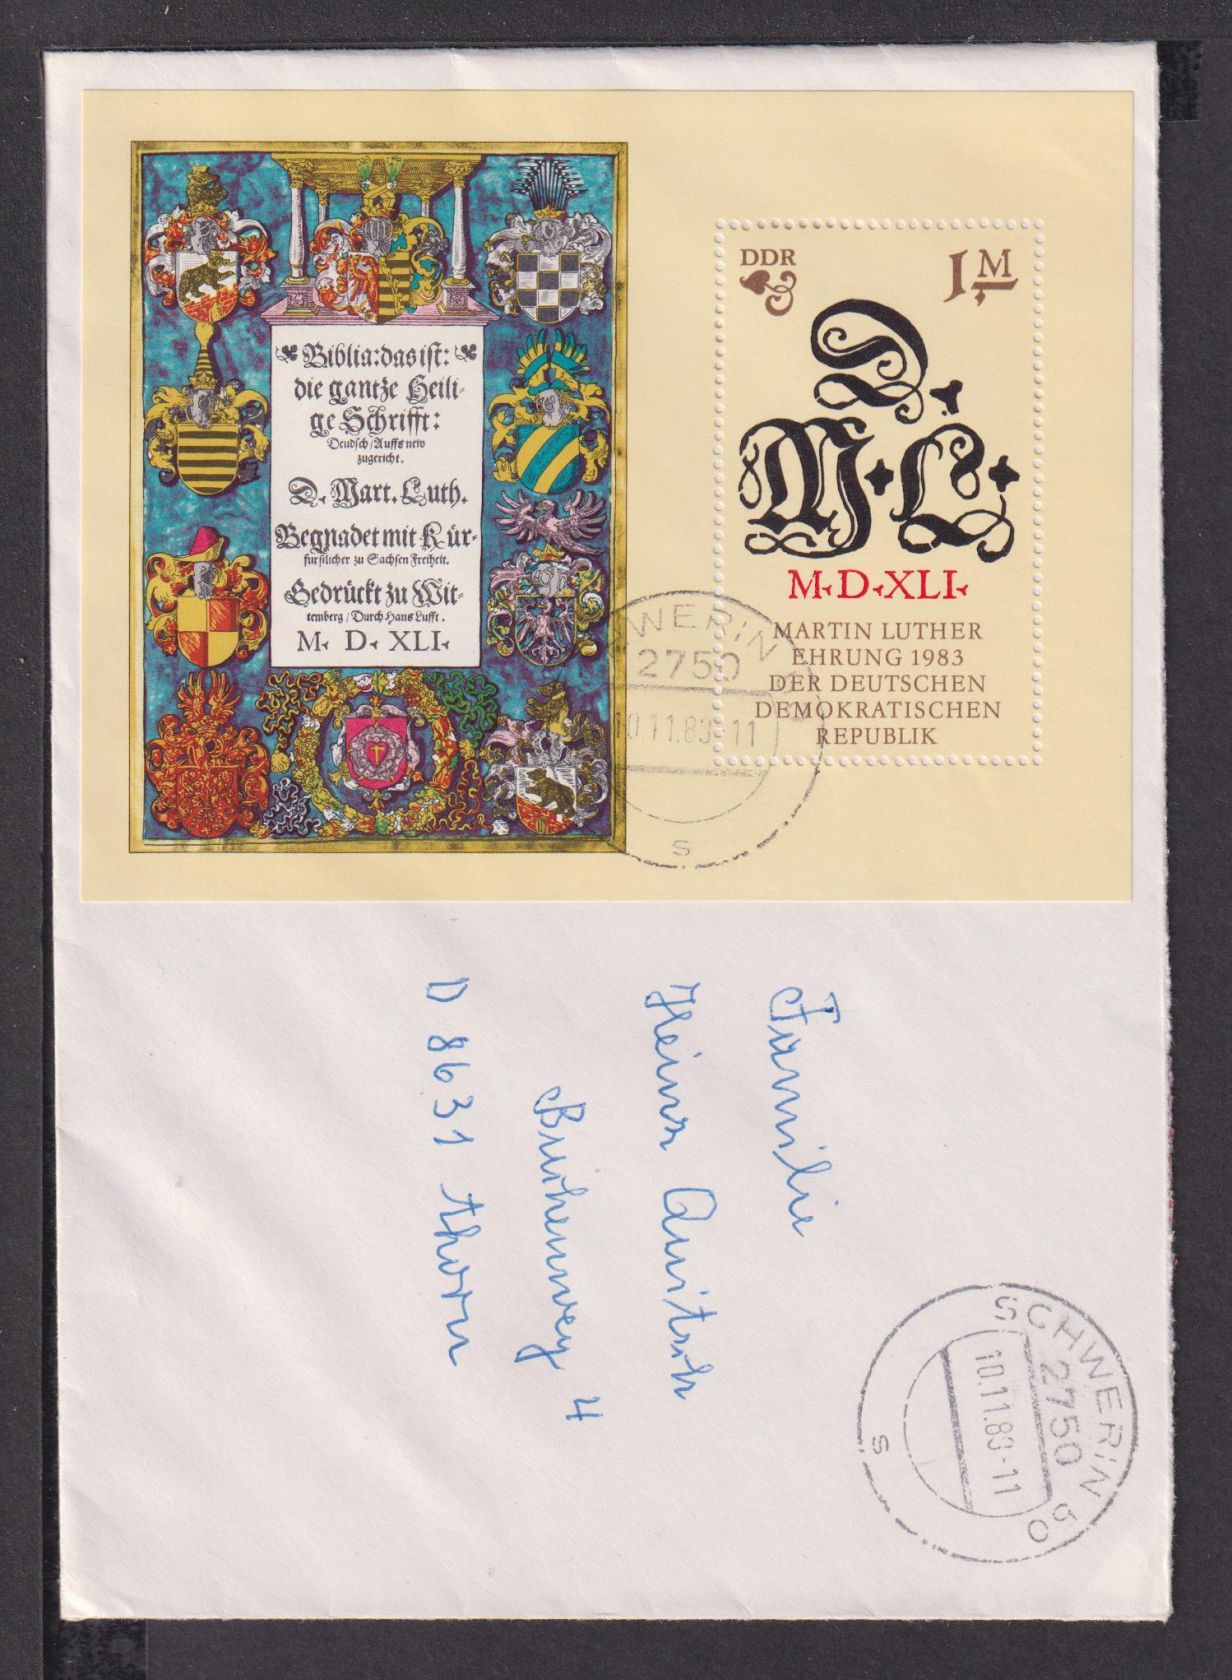 Biblia: das ist:
die gantze Heili-
ge Schrifft:
Deudsch / Auffs new
zugericht.
D. Mart. Luth.
Begnadet mit Kür-
fürstlicher zu Sachsen Freiheit.
Gedrückt zu Wit-
temberg / Durch Hans Lufft.
M. D. XLI.
DDR
1 M
D
M L
M·D·XLI·
MARTIN LUTHER
EHRUNG 1983
DER DEUTSCHEN
DEMOKRATISCHEN
REPUBLIK
SCHWERIN
2750
10.11.83-11
s
Familie
Heinz Quitsch
Buchenweg 4
D 8631 Ahorn
SCHWERIN 50
2750
10.11.83-11
s